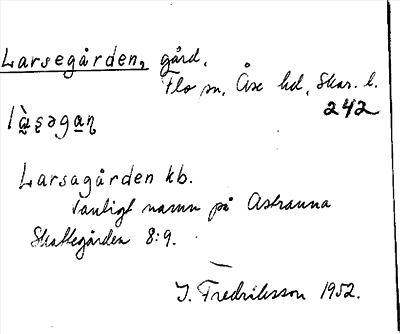 Larsegården, gård,
Flo sn, Åse hd, Skar. l.
242
Larsagården kb.
Vanligt namn på
Skattegården 8:9.
I. Fredriksson 1952.